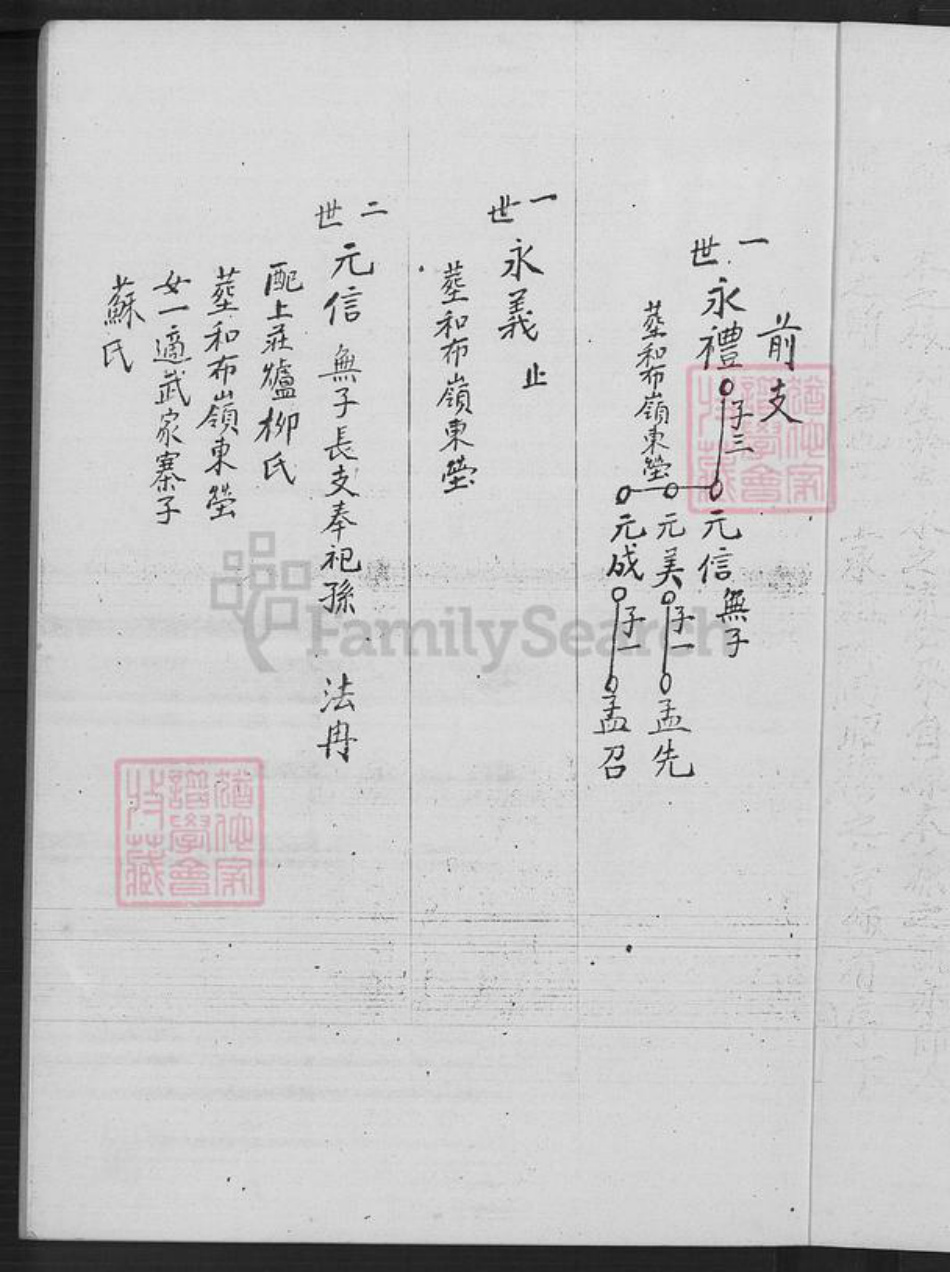 前支
一世 永禮 子三
葬和布嶺東塋
元信 無子
元美 子一 孟先
元成 子一 孟召
一世 永義 止
葬和布嶺東塋
二世 元信 無子長支奉祀孫 法冉
配上莊爐柳氏
葬和布嶺東塋
女一適武家寨子
蘇氏
FamilySearch